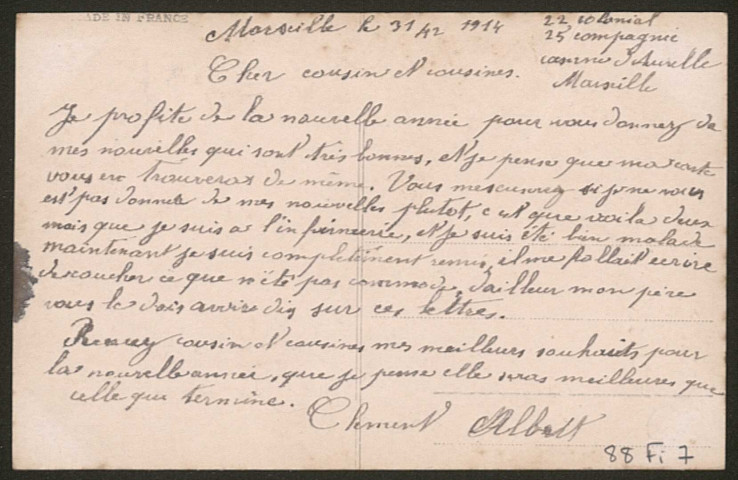 MADE IN FRANCE
Marseille le 31/12 1914
22 colonial
25 compagnie
caserne d'Aurelle
Marseille
Cher cousin et cousines.
Je profite de la nouvelle année pour vous donnez de
mes nouvelles qui sont très bonnes, et je pense que ma carte
vous en trouveras de même. Vous mescuserez si je ne vous
est pas donner de mes nouvelles plutot, c'est que voila deux
mois que je suis a l'infirmerie, et je suis été bien malade
maintenant je suis completement remis, il me fallait ecrire
de coucher ce que n'été pas commode, d'ailleur mon père
vous le dois avoir dis sur ces lettres.
Recevez cousin et cousines mes meilleurs souhaits pour
la nouvelle année, que je pense elle seras meilleures que
celle qui termine.
Clement Albert
88 Fi 7